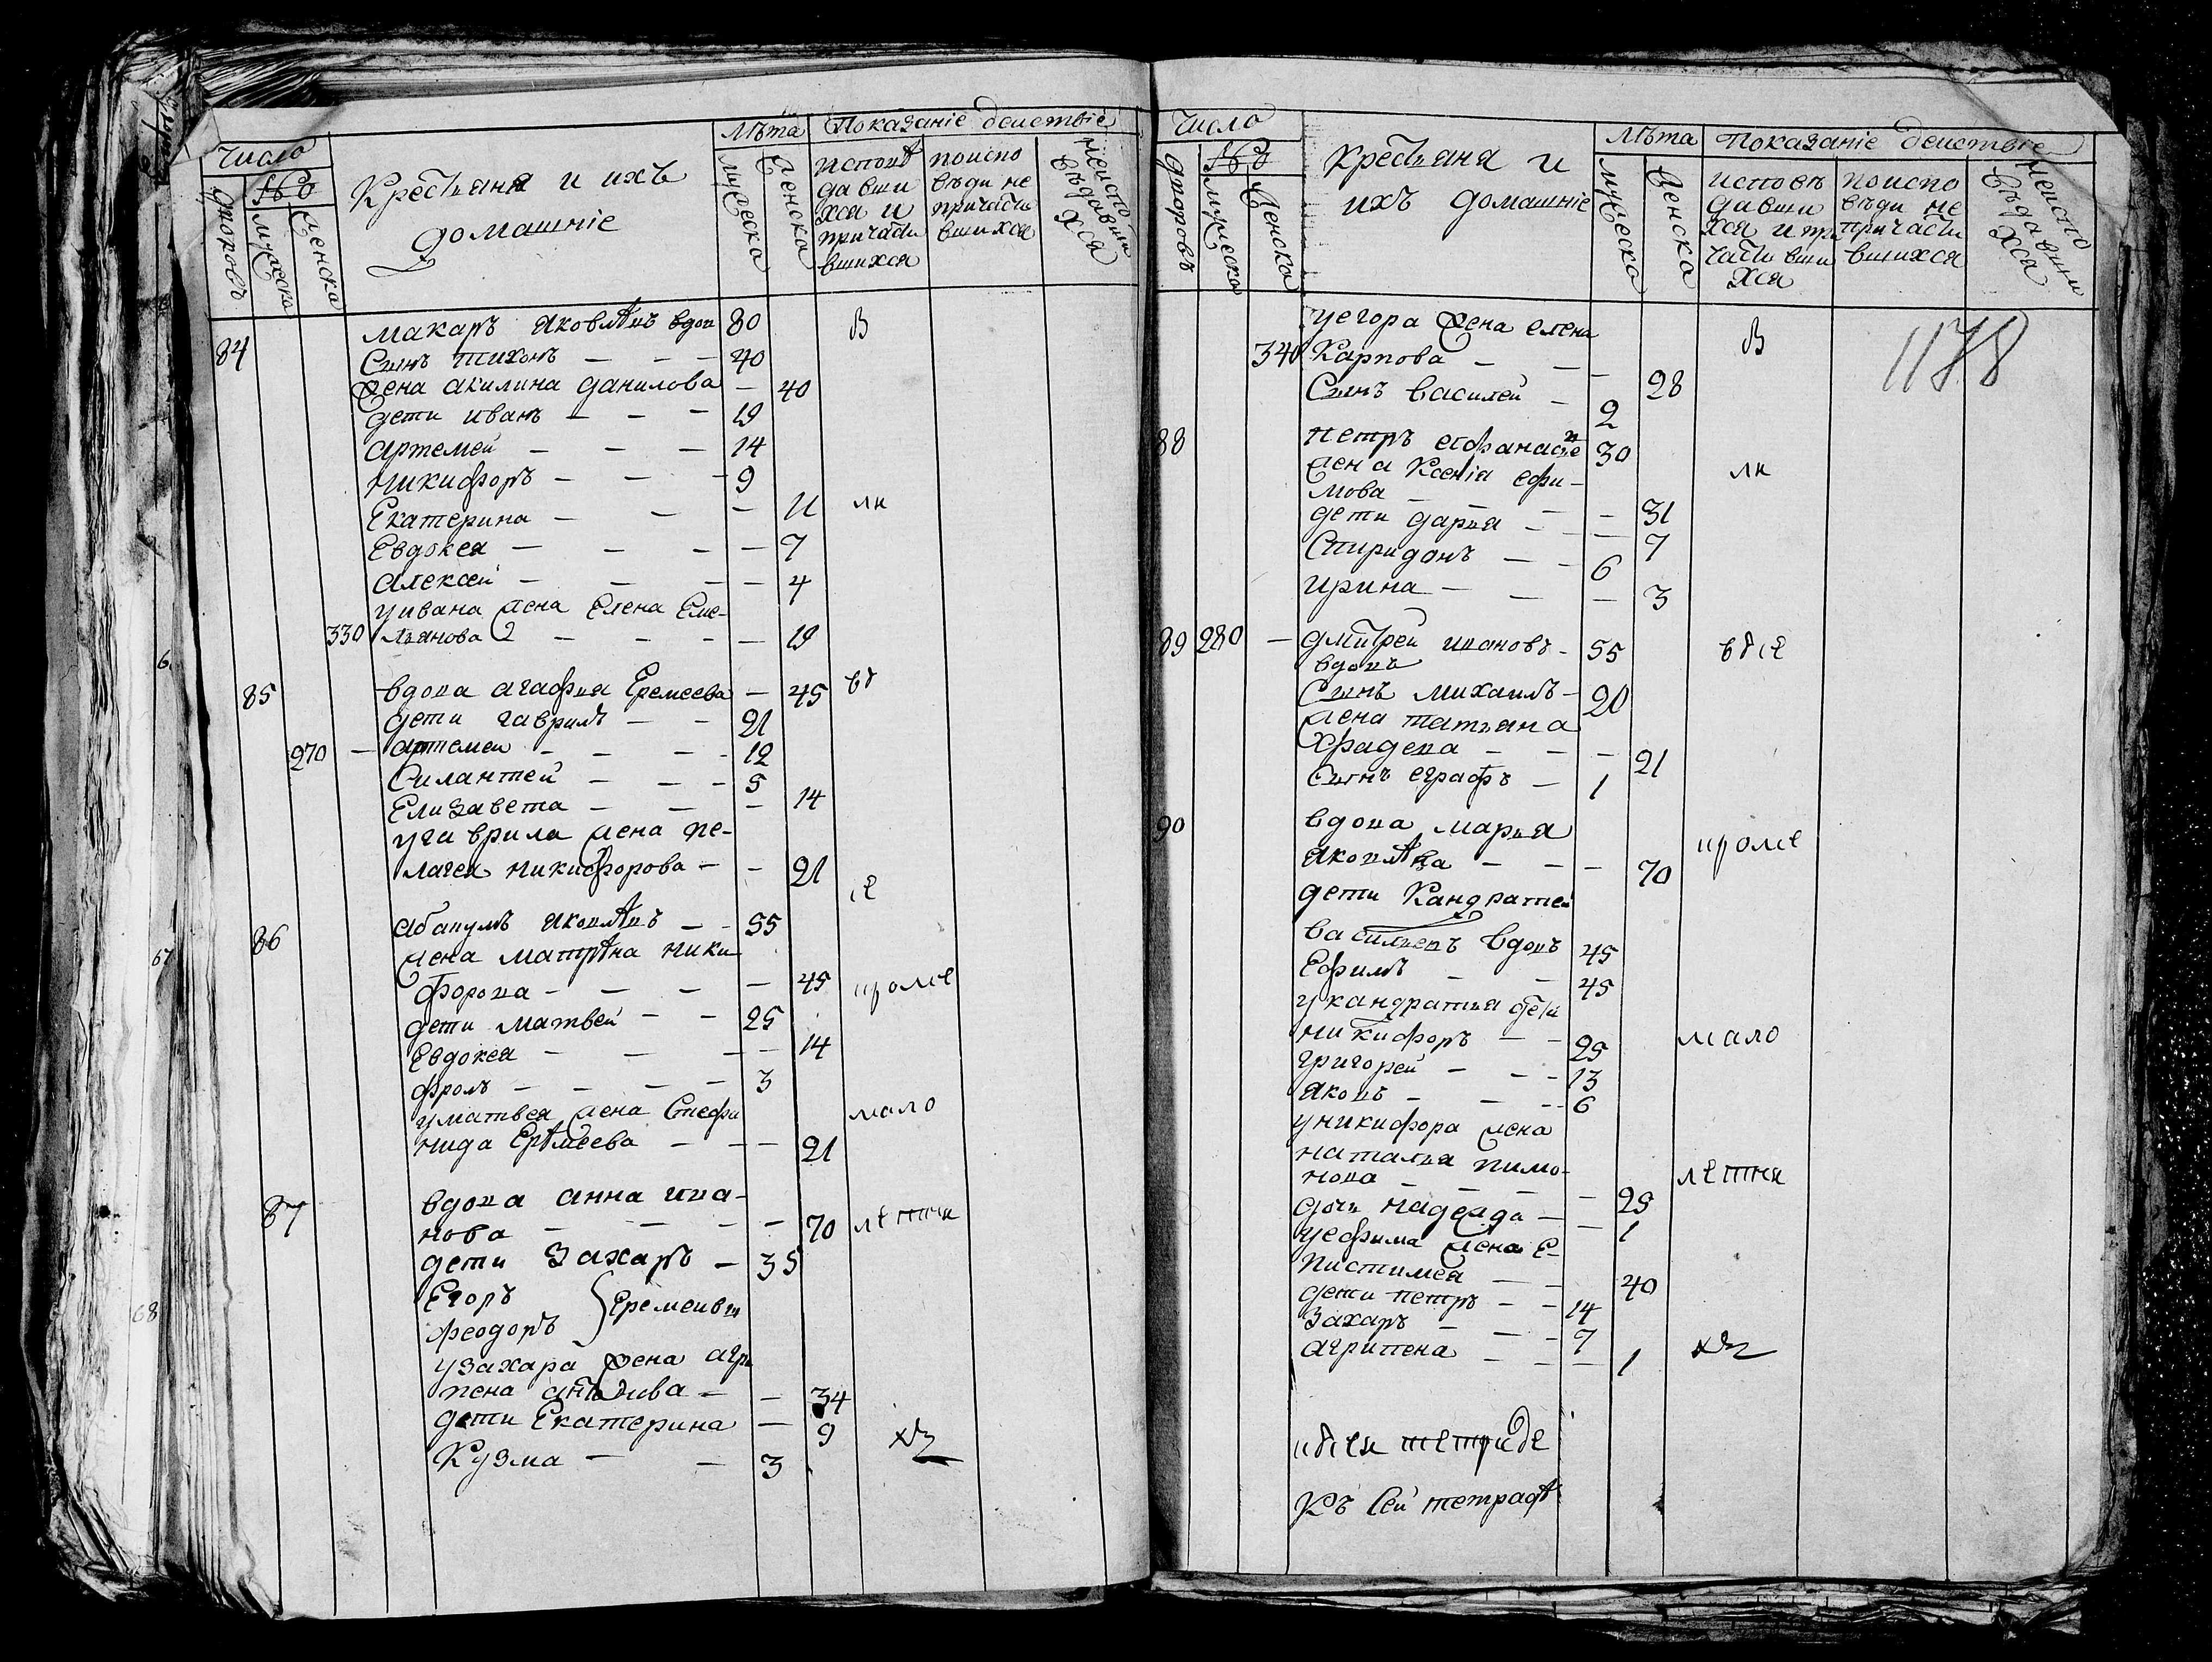 Число
Лѣта Показаніе действіе
дворовъ мужеска женска
Крестьяня и ихъ
домашніе
мужеска женска
исповѣ
давши
хся и
причасти
вшихся
поиспо
вѣди не
причасти
вшихся
неиспо
вѣдавши
хся
84 макаръ яковлѣвъ вдов 80 в
Сынъ тихонъ — — — 40
жена акилина данилова — 40
дети иванъ — — — 19
артемей — — — 14
никифоръ — — — 9
Екатерина — — — 11 ли
Евдокея — — — — 7
алексей — — — — 4
уивана жена Елена Еме-
330 льянова — — — — 19
85 вдова агафия Еремеева — 45
дети гаврилъ — — 21
270 — артемеи — — — 12
Силантей — — — 5
Елизавета — — — 14
угаврила жена пе-
лагея никифорова — — 21
86 абакумъ яковлѣвъ — — 55
жена матрѣна ники
форова — — — — 45
дети матвей — — 25
Евдокея — — — — 14
фролъ — — — — 3
уматвея жена Стефа
нида Ерѣмеева — — — 21 мало
87 вдова анна ива-
нова — — — — 70 летни
дети Захаръ — 35
Егоръ
феодоръ } Еремеивы
узахара жена агри
пена — — 34
дети Екатерина — 9
Кузма — — 3
Число
Лѣта Показаніе действіе
дворовъ мужеска женска
Крестьяня и
ихъ домашніе
мужеска женска
исповѣ
давши
хся и при
части вши
хся
поиспо
вѣди не
причасти
вшихся
неиспо
вѣдавши
хся
уегора жена елена в 1178
340 Карпова — — — 28
Сынъ василей — 2
88 петръ афанасие 30
жена Ксенія ефи- ли
мова — — — 31
дети дарья — — — 7
Спиридонъ — — 6
ирина — — — 3
89 280 — дмитрей ивановъ — 55
вдовъ
Сынъ михаилъ — 20
жена татьяна
фадева — — — 21
Сынъ еграфъ — 1
90 вдова марья
яковлѣва — — — 70
дети Кандратей
васильевъ вдовъ 45
Ефимъ — — 45
укандратья дети
никифоръ — — 25 мало
григорей — — — 13
яковъ — — — 6
уникифора жена
наталья пимо-
нова — — — — 25 летни
дочь надежда — — 1
уефима жена Е-
пистимея — — 40
дети петръ — — 14
Захаръ — — — 7
агрипена — — — 1
тетраде
Къ Сей тетрадѣ